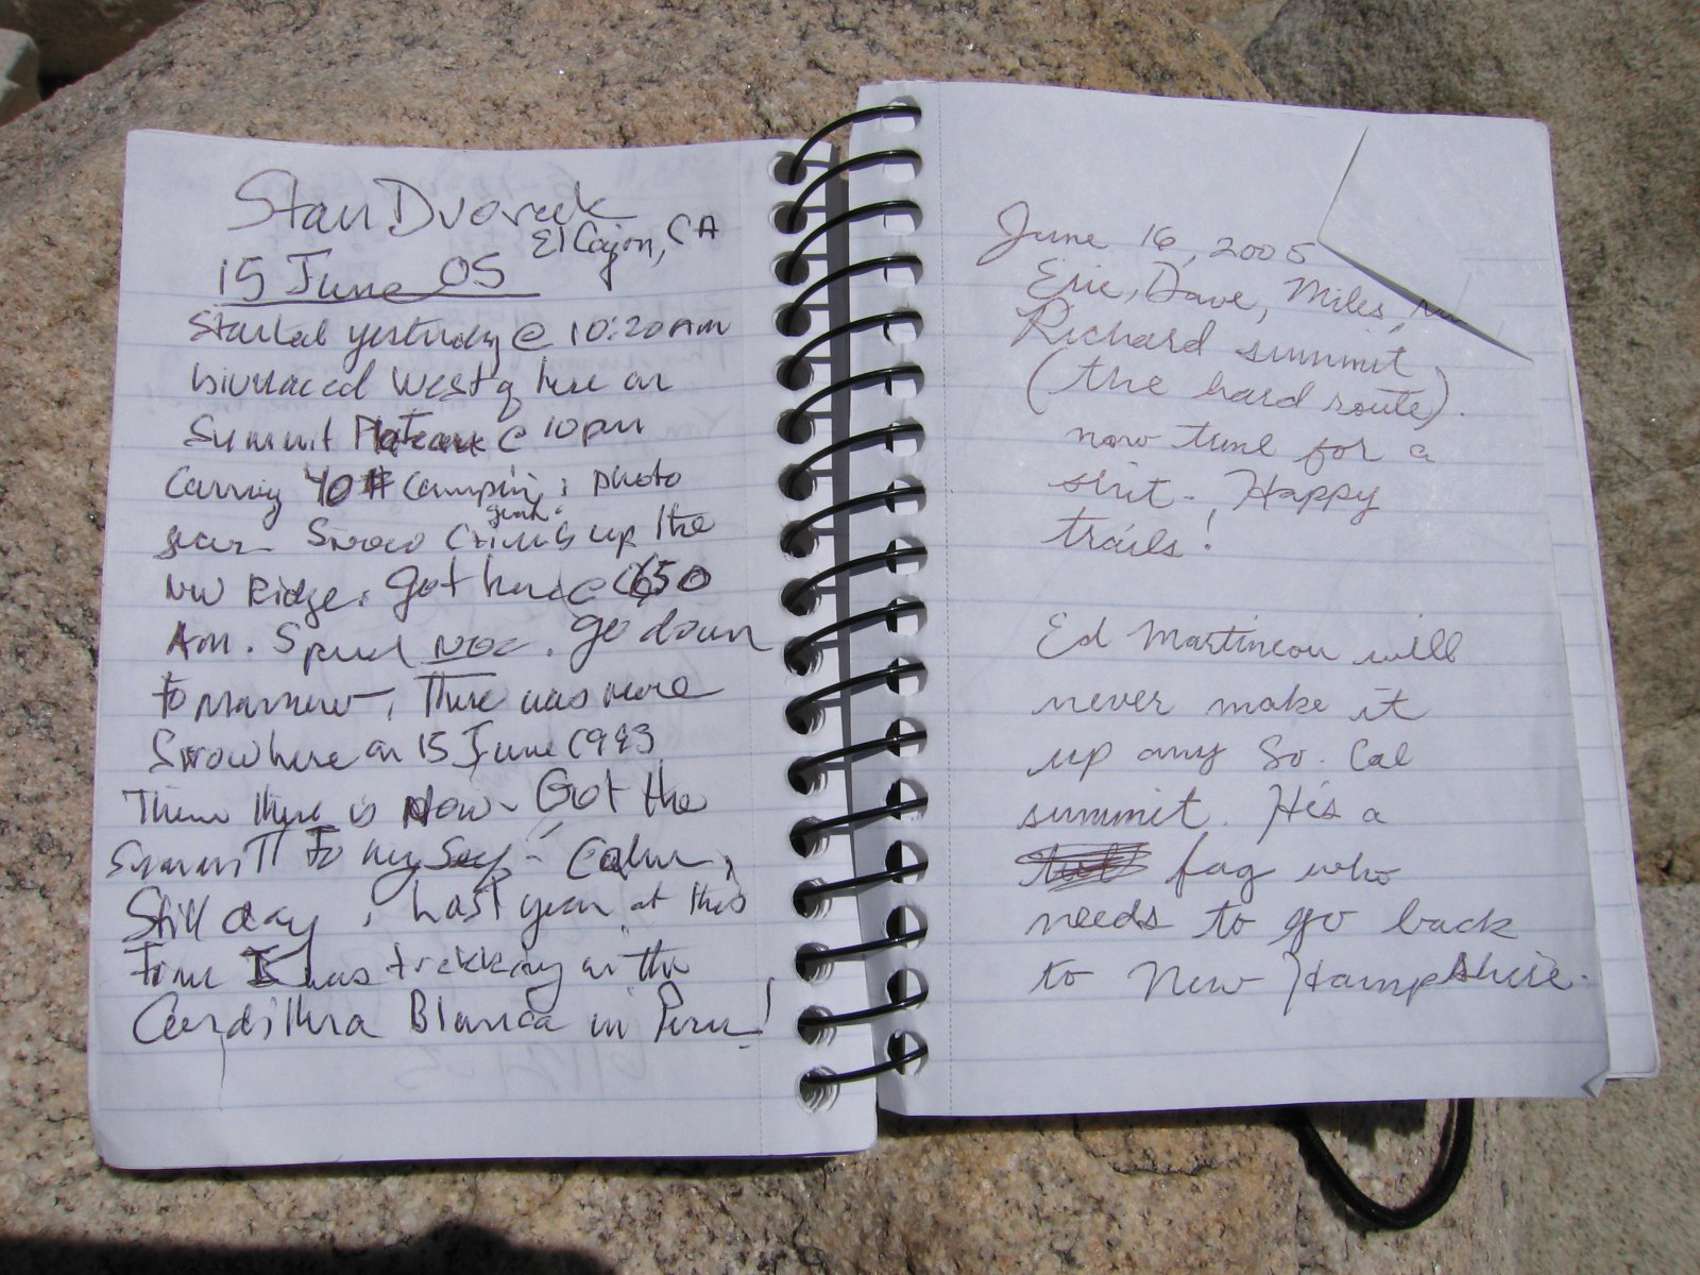 Stan Dvorak
El Cajon, CA
15 June 05
Started yesterday @ 10:20 AM
bivuaced West of here on
Summit Plateau @ 10pm
Carring 40# camping & photo
gear
gear. Snow Climb up the
NW Ridge. Got here @ 650
Am. Spend noc. go down
tomarrow. There was more
Snow here on 15 June 1993
Then there is Now. Got the
Summit To my Self - Calm,
Still day. Last year at this
Time I was trekking in the
Cordillera Blanca in Peru!
June 16, 2005
Eric, Dave, Miles,
Richard summit
(the hard route).
now time for a
shit. Happy
trails!
Ed Martineau will
never make it
up any So. Cal
summit. He's a
fag who
needs to go back
to New Hampshire.